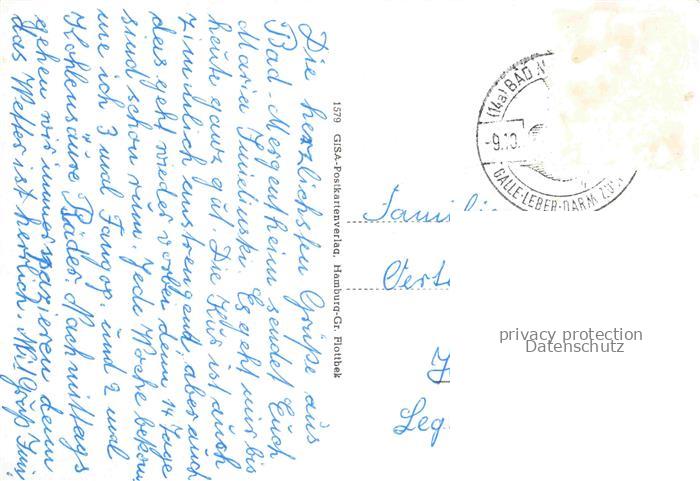 Die herzlichsten Grüße aus
Bad-Mergentheim sendet Euch
Maria Es geht mir bis
heute ganz gut. Die Kur ist auch
ziemlich anstrengend, aber auch
das geht wieder vorbei denn 14 Tage
sind schon rum. Jede Woche bekom
me ich 3 mal Fango, und 2 mal
Kohlensäure Bäder. Nachmittags
gehen wir immer spazieren denn
das Wetter ist herrlich. Gruß
1579 GISA-Postkartenverlag, Hamburg-Gr. Flottbek
(14a) BAD
-9.10.
GALLE-LEBER-DARM
Famili
privacy protection
Datenschutz
Leg